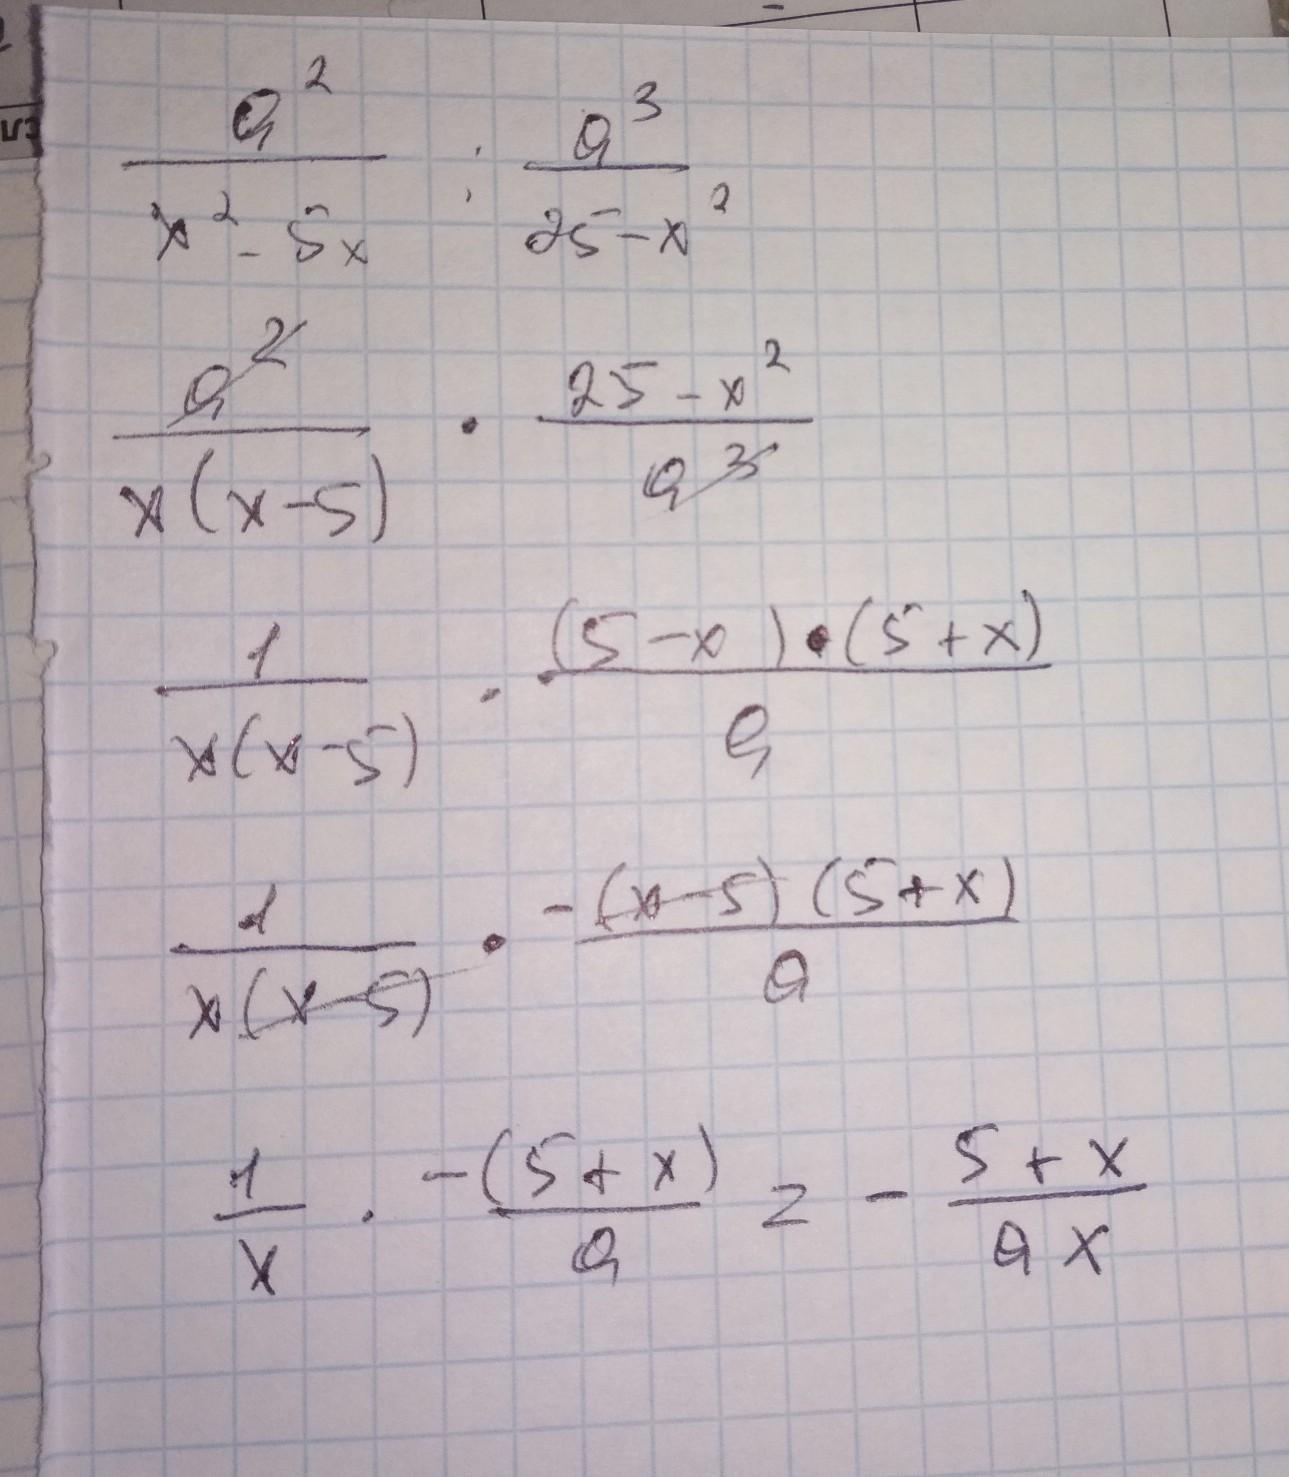 a² / (x² - 5x) : a³ / (25 - x²)
a² / x(x-5) · (25 - x²) / a³
1 / x(x-5) · (5-x)·(5+x) / a
1 / x(x-5) · -(x-5)(5+x) / a
1 / x · -(5+x) / a = - (5+x) / ax